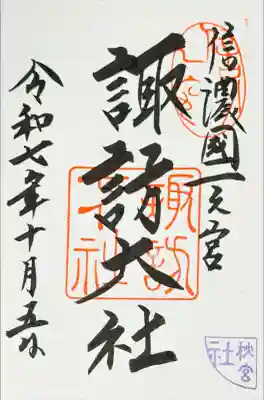 信濃國一之宮
諏訪大社
令和七年十月五日
諏訪大社
秋宮
社